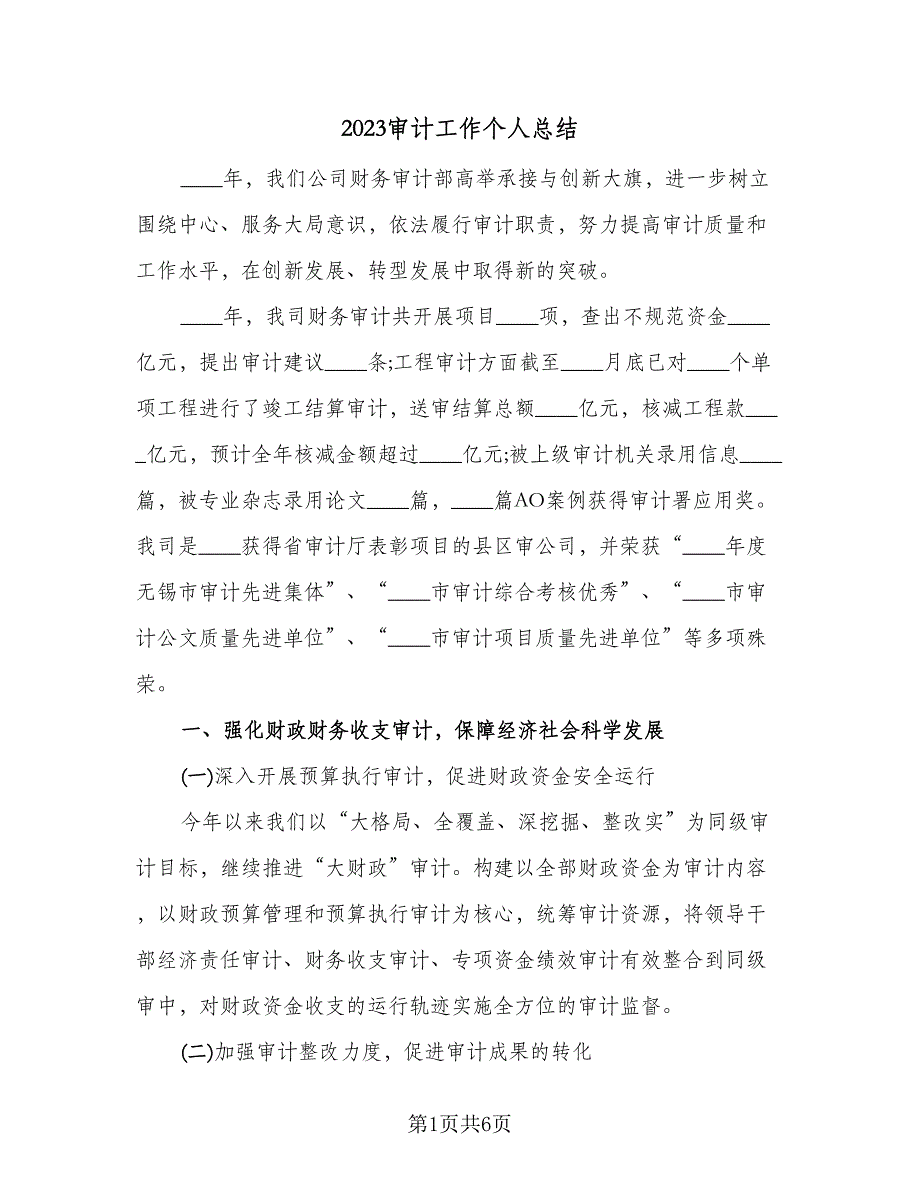 2023审计工作个人总结
____年，我们公司财务审计部高举承接与创新大旗，进一步树立
围绕中心、服务大局意识，依法履行审计职责，努力提高审计质量和
工作水平，在创新发展、转型发展中取得新的突破。
____年，我司财务审计共开展项目____项，查出不规范资金____
亿元，提出审计建议____条;工程审计方面截至____月底已对____个单
项工程进行了竣工结算审计，送审结算总额____亿元，核减工程款___
_亿元，预计全年核减金额超过____亿元;被上级审计机关录用信息____
篇，被专业杂志录用论文____篇，____篇AO案例获得审计署应用奖。
我司是____获得省审计厅表彰项目的县区审公司，并荣获“____年度
无锡市审计先进集体”、“____市审计综合考核优秀”、“____市审
计公文质量先进单位”、“____市审计项目质量先进单位”等多项殊
荣。
一、强化财政财务收支审计，保障经济社会科学发展
(一)深入开展预算执行审计，促进财政资金安全运行
今年以来我们以“大格局、全覆盖、深挖掘、整改实”为同级审
计目标，继续推进“大财政”审计。构建以全部财政资金为审计内容
，以财政预算管理和预算执行审计为核心，统筹审计资源，将领导干
部经济责任审计、财务收支审计、专项资金绩效审计有效整合到同级
审中，对财政资金收支的运行轨迹实施全方位的审计监督。
(二)加强审计整改力度，促进审计成果的转化
第1页共6页